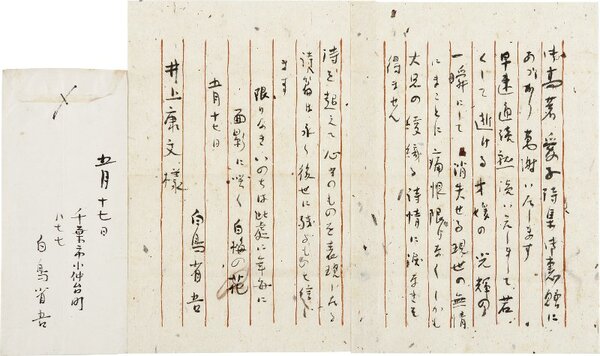 御高著 愛子詩集 御恵贈に
あづかり 萬謝いたします
早速通読熟読いたしまして 若
くして逝ける才媛の光輝の
一瞬にして 消失せる現世の無情
にまことに痛恨限りなく しかも
大兄の綾織る詩情に涙なきを
得ません
詩を超えて心そのものを表現したる
詩篇は永く後世に残るものと信じ
ます
限りなきいのちは此處に年毎に
面影に咲く白梅の花
五月十七日
白鳥省吾
井上康文様
〆
五月十七日
千葉市小仲台町
八七七
白鳥省吾